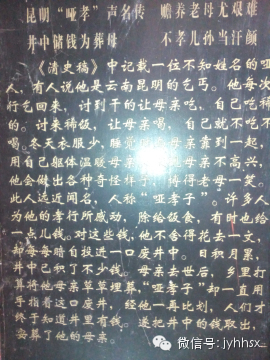 昆明“哑孝”声名传　赡养老母尤艰难
井中储钱为葬母　不孝儿孙当汗颜
《清史稿》中记载一位不知姓名的哑
人，有人说他是云南昆明的乞丐。他每次
行乞回来，讨到干的让母亲吃，自己吃稀
的。讨来稀饭，让母亲喝，自己就不吃不
喝。冬天衣服少，睡觉和母亲靠到一起，
用自己躯体温暖母亲。母亲不高兴，
他会做出各种奇怪样子，博得老母一笑。
此人远近闻名，人称“哑孝子”。许多人
为他的孝行所感动，除给饭食，有时也给
一点儿钱。对这些钱，他不舍得花去一文，
却每每暗自投进一口废井中。日积月累，
井中已积了不少钱。母亲去世后，乡里打
算将他母亲草草埋葬，“哑孝子”却一直用
手指着这口废井，经他一再比划，人们才
终于知道井里有钱。遂把井中的钱取出，
安葬了他的母亲。
微信号：jyhhsx